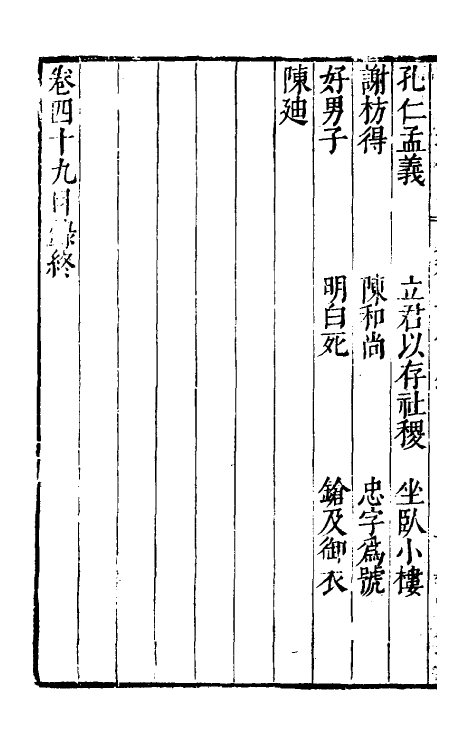 孔仁孟義　立君以存社稷　坐臥小樓
謝枋得　陳和尚　忠字爲號
好男子　明白死　鎗及御衣
陳廸
卷四十九目錄終